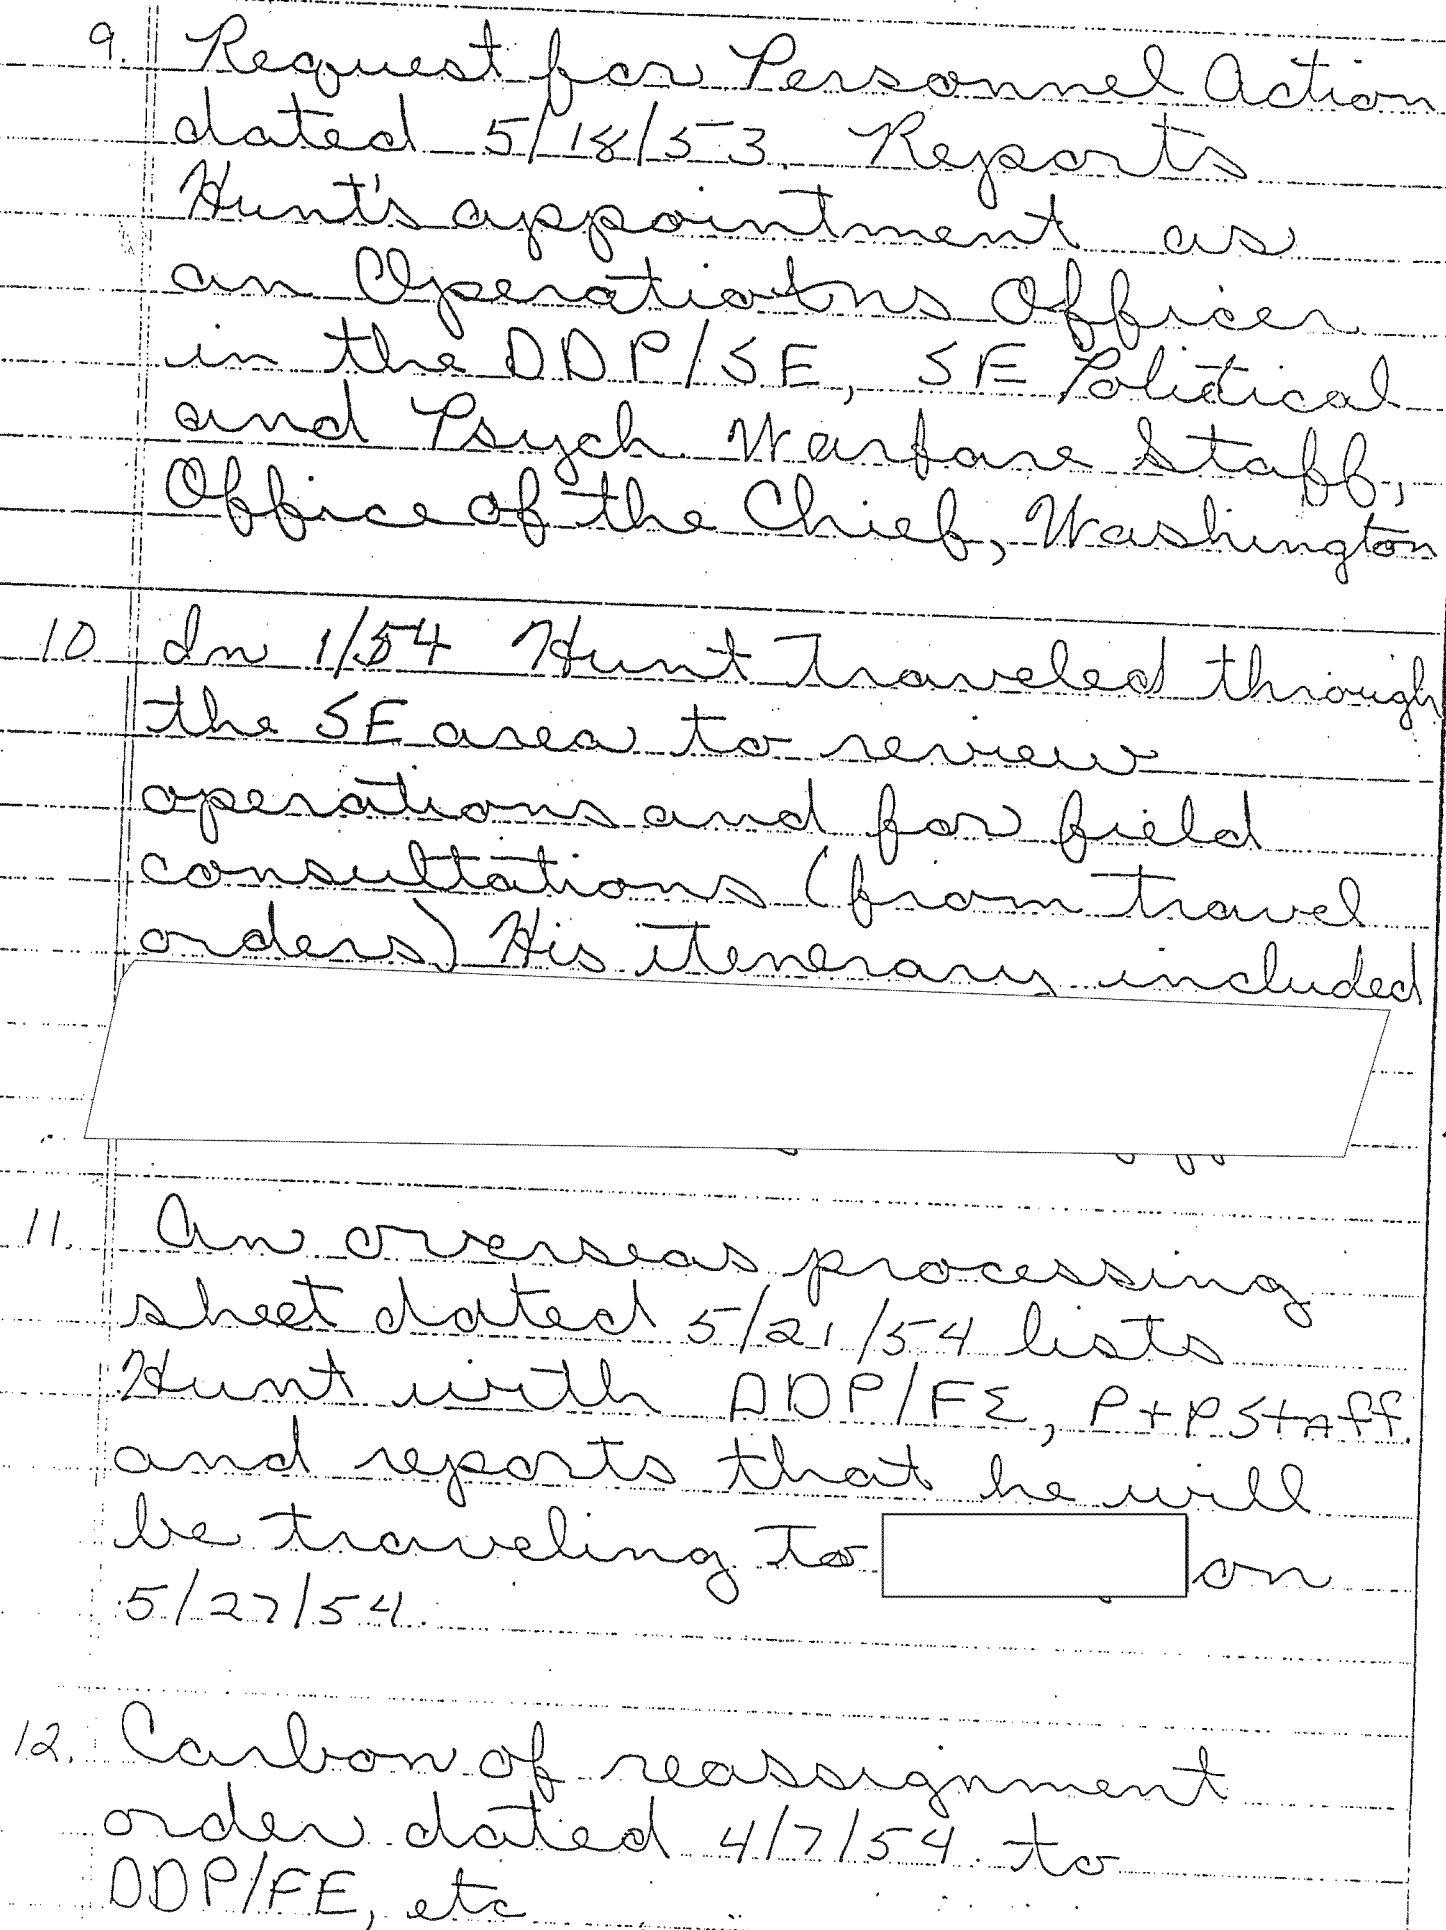 9. Request for Personnel Action
dated 5/18/53. Reports
Hunt's appointment as
an Operations Officer
in the DDP/SE, SE Political
and Psych. Warfare Staff,
Office of the Chief, Washington
10 In 1/54 Hunt traveled through
the SE area to review
operations and for field
consultations (from travel
orders) His itenerary included
11. An overseas processing
sheet dated 5/21/54 lists
Hunt with DDP/FE, P+P Staff.
and reports that he will
be traveling to on
5/27/54.
12. Carbon of reassignment
order dated 4/7/54 to
DDP/FE, etc